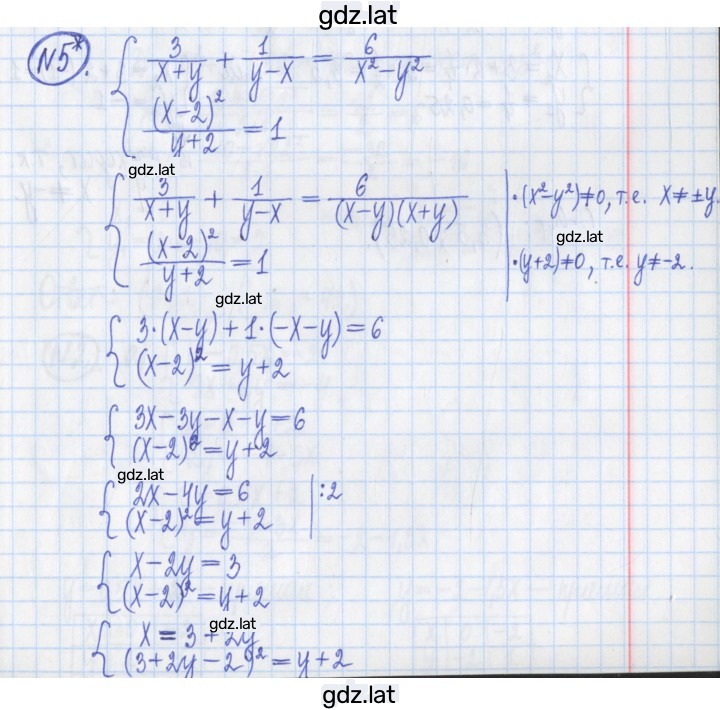 gdz.lat
N5*. { 3/(x+y) + 1/(y-x) = 6/(x²-y²)
(x-2)²/(y+2) = 1
gdz.lat
{ 3/(x+y) + 1/(y-x) = 6/((x-y)(x+y)) | •(x²-y²)≠0, т.е. x≠±y.
gdz.lat
(x-2)²/(y+2) = 1 | •(y+2)≠0, т.е. y≠-2.
gdz.lat
{ 3·(x-y)+1·(-x-y)=6
(x-2)²=y+2
{ 3x-3y-x-y=6
(x-2)²=y+2
gdz.lat
{ 2x-4y=6 |:2
(x-2)²=y+2
{ x-2y=3
(x-2)²=y+2
gdz.lat
{ x=3+2y
(3+2y-2)²=y+2
gdz.lat